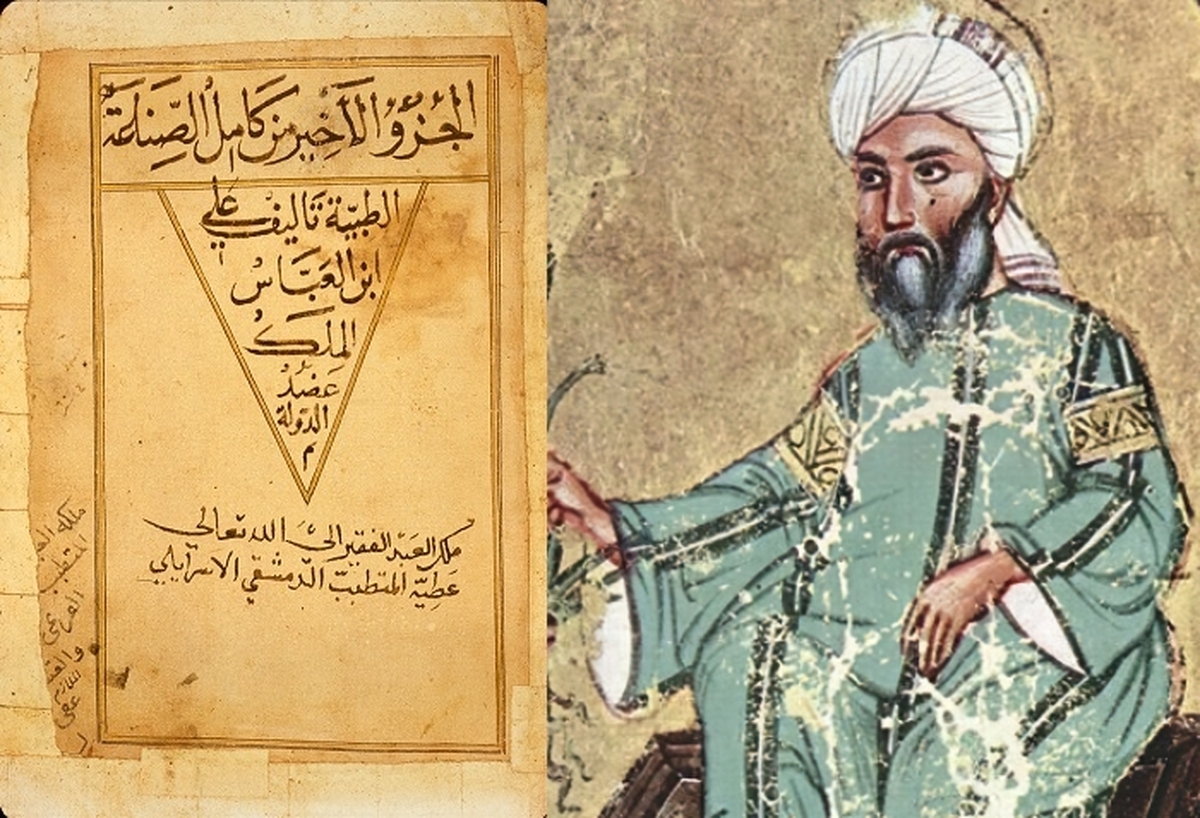 الجُزْؤُ الْاَخِيرُ مِنْ كَامِلُ الصِّنَاعَةِ
الطبيّة تَاليف عَلي
ابن العَبَّاسْ
المِلَكْ
عَضُدُ
الدّولة
م
ملك العَبْد الفقير اليَ الله تعالى
عَطِيّه المتطببّ الدمشقي الاسرآيلي